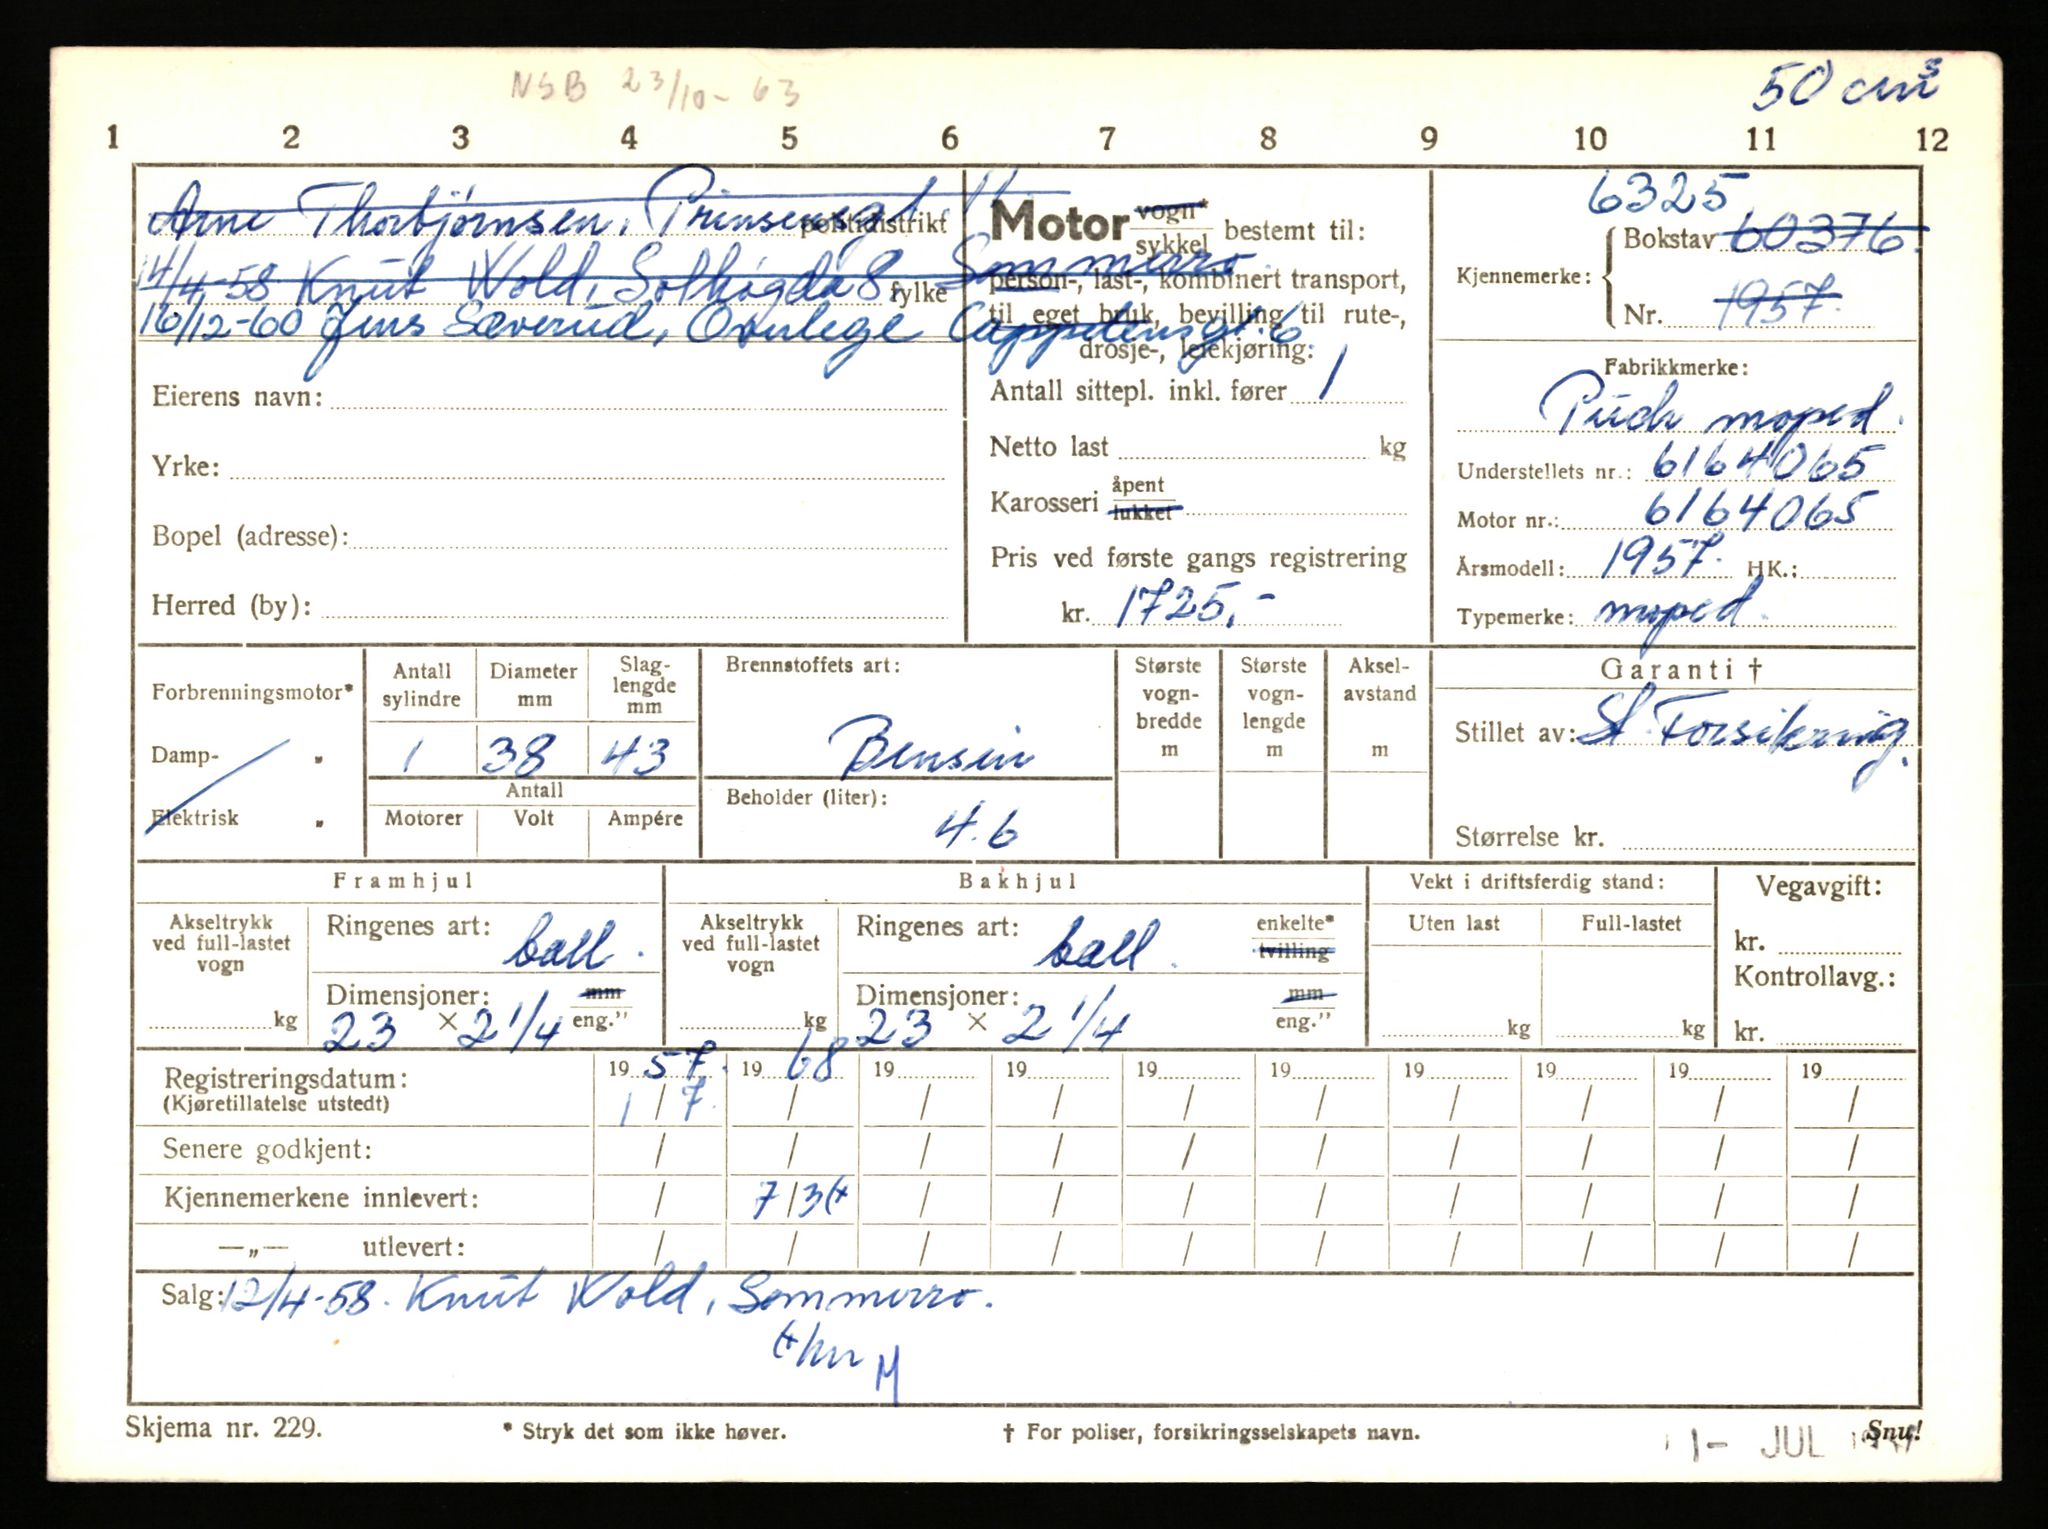 NSB 23/10-63
50 cm³
1 2 3 4 5 6 7 8 9 10 11 12
Arne Thorbjørnsen, Prinsensgt. 11
politidistrikt
14/4-58 Knut Wold, Solhøgda 8, Sommerro.
fylke
16/12-60 Jens Sæverud, Ovnlege Cappelensgt. 6
Eierens navn:
Yrke:
Bopel (adresse):
Herred (by):
Motor vogn*
sykkel
bestemt til:
person-, last-, kombinert transport,
til eget bruk, bevilling til rute-,
drosje-, leiekjøring:
Antall sittepl. inkl. fører 1
Netto last kg
Karosseri åpent
lukket
Pris ved første gangs registrering
kr. 1725,-
6325
Kjennemerke: Bokstav 60376.
Nr. 1957.
Fabrikkmerke:
Puch moped.
Understellets nr.: 6164065
Motor nr.: 6164065
Årsmodell: 1957. HK.:
Typemerke: moped.
Forbrenningsmotor*
Damp- "
Elektrisk "
Antall sylindre
1
Diameter mm
38
Slag-lengde mm
43
Antall
Motorer Volt Ampére
Brennstoffets art:
Bensin
Beholder (liter):
4.6
Største vogn-bredde m
Største vogn-lengde m
Aksel-avstand m
Garanti †
Stillet av: St. Forsikring.
Størrelse kr.
Framhjul
Akseltrykk ved full-lastet vogn
kg
Ringenes art: ball.
Dimensjoner: mm
23 × 2 1/4 eng."
Bakhjul
Akseltrykk ved full-lastet vogn
kg
Ringenes art: ball. enkelte*
tvilling
Dimensjoner: mm
23 × 2 1/4 eng."
Vekt i driftsferdig stand:
Uten last Full-lastet
kg kg
Vegavgift:
kr.
Kontrollavg.:
kr.
Registreringsdatum: 19 57. 19 68 19 19 19 19 19 19 19 19
(Kjøretillatelse utstedt) 1/7. / / / / / / / / /
Senere godkjent: / / / / / / / / / /
Kjennemerkene innlevert: / 7/3 (+ / / / / / / / /
—„— utlevert: / / / / / / / / / /
Salg: 12/4-58. Knut Wold, Sommerro.
M
Skjema nr. 229. * Stryk det som ikke høver. † For poliser, forsikringsselskapets navn. Snu!
1- JUL